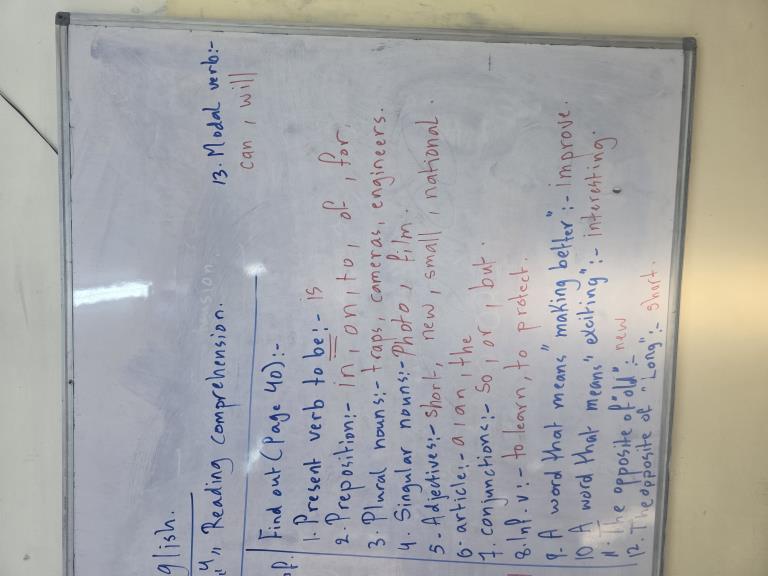 glish.
4" Reading comprehension.
Find out (Page 40):-
1. Present verb to be:- is
2. Preposition:- in, on, to, of, for.
3. Plural nouns:- traps, cameras, engineers.
4. Singular nouns:- Photo, film.
5- Adjectives:- short, new, small, national.
6- article:- a, an, the
7. conjunctions:- so, or, but.
8. Inf. v:- to learn, to protect.
9. A word that means "making better":- improve.
10. A word that means "exciting":- interesting.
11. The opposite of "old":- new
12. The opposite of "Long":- short.
13. Modal verb:-
can, will